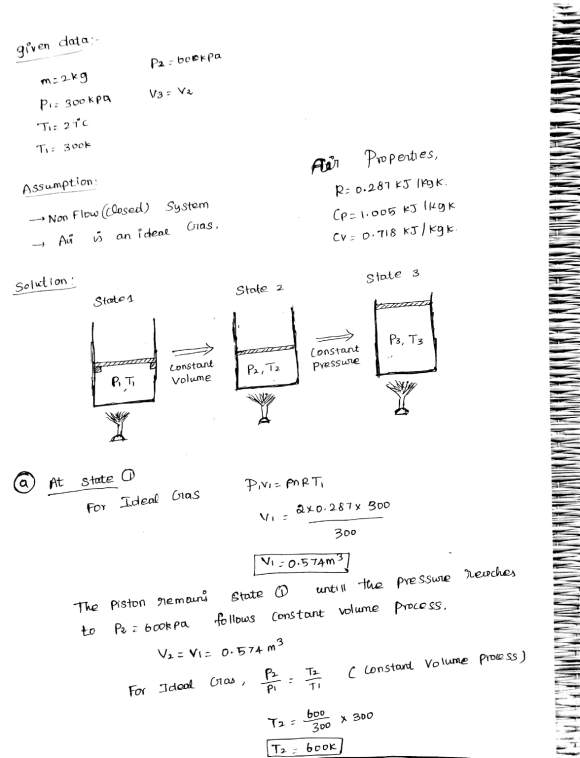 given data:-
m=2kg
P2 = 600kpa
P1= 300kpa
V3= V2
T1= 27°C
T1= 300k
Assumption:
→ Non Flow (closed) System
→ Air is an ideal Gas.
Air Properties,
R= 0.287 KJ/kgk.
Cp= 1.005 KJ/kgk
Cv= 0.718 KJ/kgk.
Solution:
State 1
State 2
State 3
Constant Volume
Constant Pressure
P1, T1
P2, T2
P3, T3
ⓐ At state ①
For Ideal Gas P1V1= mRT1
V1 = 2x0.287x300 / 300
V1= 0.574m³
The piston remains State ① untill the pressure reaches
to P2= 600kpa follows constant volume process.
V2= V1= 0.574 m³
For Ideal Gas, P2/P1 = T2/T1 (Constant Volume process)
T2 = 600/300 x 300
T2= 600k